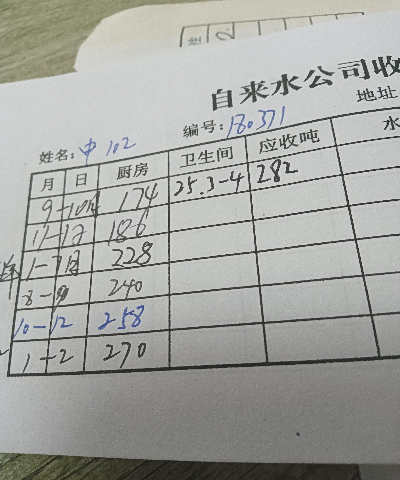 自来水公司收
姓名：中102 编号：180371 地址
月 日 厨房 卫生间 应收吨 水
9-10月 174 25.3-4 282
11-12 186
1-7月 228
8-9 240
10-12 258
1-2 270